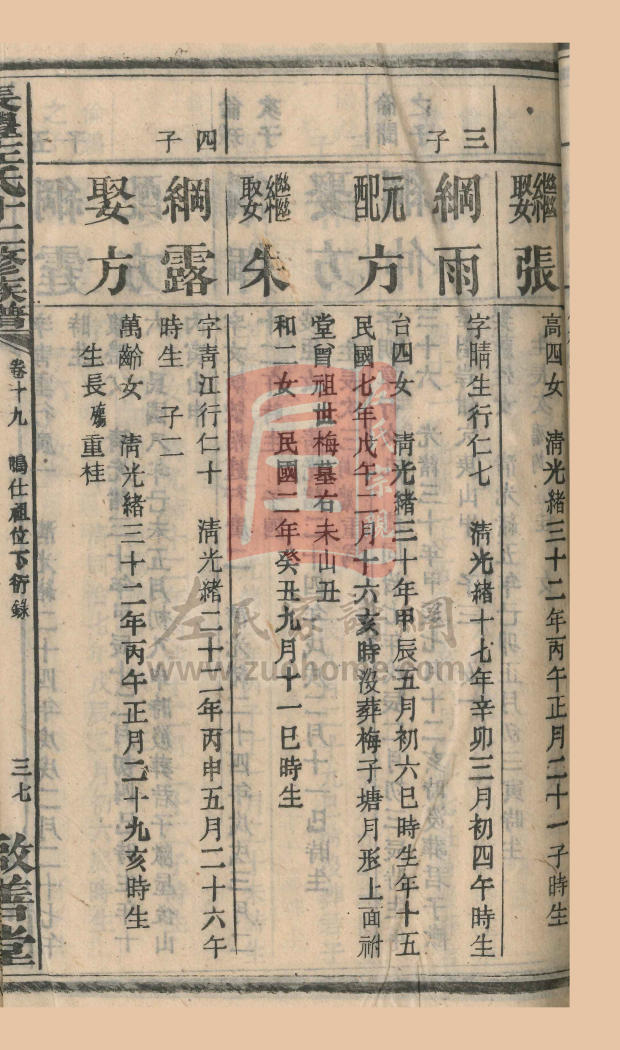 繼娶張
高四女 清光緒三十二年丙午正月二十一子時生
三子
綱雨
字晴生行仁七 清光緒十七年辛卯三月初四午時生
元配方
台四女 清光緒三十年甲辰五月初六巳時生年十五
民國七年戊午二月十六亥時沒葬梅子塘月形上面祔
堂曾祖世梅墓右未山丑
繼娶朱
和二女 民國二年癸丑九月十一巳時生
四子
綱露
字青江行仁十 清光緒二十二年丙申五月二十六午
時生 子二
娶方
萬齡女 清光緒三十二年丙午正月二十九亥時生
生長殤重桂
左氏十二修族譜
卷十九 鳴仕祖位下衍錄
三七
啟善堂
www.zuohome.com